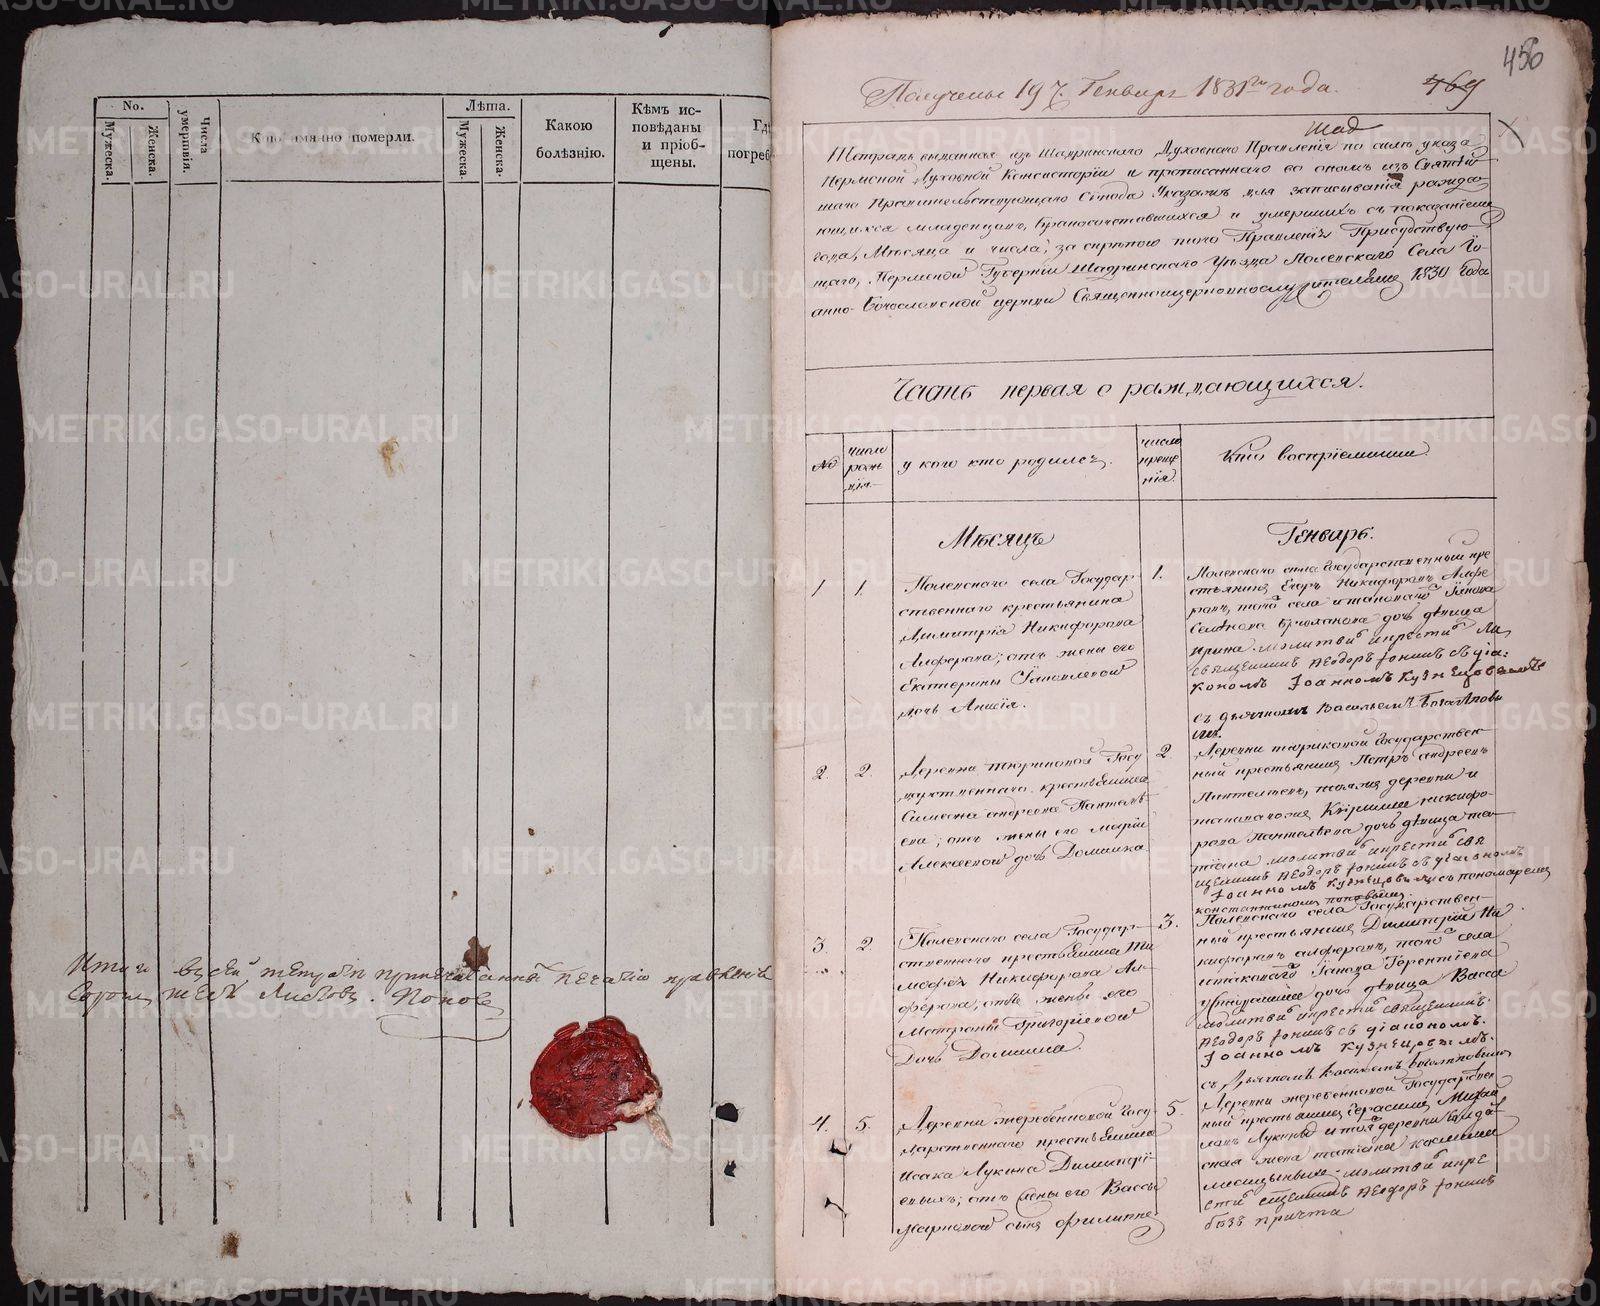 No.
Мужеска.
Женска.
Числа умертвія.
Кто имянно померли.
Лѣта.
Мужеска.
Женска.
Какою
болѣзнію.
Кѣмъ ис-
повѣданы
и пріоб-
щены.
Гдѣ
погреб
Итого всей тетради припечатанной печатію правленія
листовъ. Поповъ
456
Получены 19 ч. Генваря 1831го года.
469
Шад
Тетрать выданная изъ Шадринскаго Духовнаго Правленія по силѣ указа
Пермской Духовной Консисторіи и прописаннаго во ономъ изъ Святѣй-
шаго Правительствующаго Сѵнода Указамъ для записыванія раждаю-
ющихся младенцовъ, бракосочетавшихся и умершихъ съ показаніемъ
года, Мѣсяца и числа, за скрѣпою того Правленія Присудствую-
щаго, Пермской Губерніи Шадринскаго Уѣзда Полевскаго Села Іо-
анно-Богословской церкви Священноцерковнослужителямъ 1830 Года
Часть первая о раждающихся.
№
число рожденія
у кого кто родился.
число крещенія.
Кто воспріемники
Мѣсяцъ
Генварь.
1
1.
Полевскаго села Государ-
ственнаго крестьянина
Димитрія Никифорова
Алферова; отъ жены его
Екатерины
дочь Анисія.
1.
Полевскаго села Государственный кре
стьянинъ Егоръ Никифоровъ Алфе
ровъ, того села Иванова
Семенова дочь дѣвица
Ирина. молитвилъ и крестилъ
священникъ Ѳеодоръ Іонинъ съ діа-
кономъ Іоанномъ Кузнецовымъ
съ дьячкомъ Васильемъ Богатыровы
мъ.
2.
2.
Деревни Государ
ственнаго крестьянина
Симеона Андреева Пантелѣ
ева; отъ жены его Маріи
Алексѣевой дочь Домника
2
Деревни Государствен-
ный крестьянинъ Петръ Андреевъ
Пантелѣевъ, тояжъ деревни и
Кирилла Никифо-
рова Пантелѣева дочь дѣвица Та-
тіана молитвилъ и крестилъ свя
щенникъ Ѳеодоръ Іонинъ съ діакономъ
Іоанномъ Кузнецовымъ съ пономаремъ
Константиномъ Поповымъ.
3.
2.
Полевскаго села Государ-
ственнаго крестьянина Ти
моѳея Никифорова Ал-
ферова; отъ жены его
Матроны Григоріевой
Дочь Домника.
3.
Полевскаго села Государствен-
ный крестьянинъ Димитрій Ни
кифоровъ Алферовъ, того села
Иванова Терентьева
дочь дѣвица Васса
молитвилъ и крестилъ священникъ
Ѳеодоръ Іонинъ съ діакономъ
Іоанномъ Кузнецовымъ
съ Дьячкомъ Васильемъ Богатыровымъ
4.
5.
Деревни Жеребенковой Госу-
дарственнаго крестьянина
Исака Лукина Димитрі-
евыхъ; отъ жены его Вассы
Марковой сынъ Филиппъ
5.
Деревни Жеребенковой Государствен
ный крестьянинъ Герасимъ Михай
ловъ Лукиныхъ и той деревни
жена Татіана
молитвилъ и кре
стилъ священникъ Ѳеодоръ Іонинъ
безъ причта